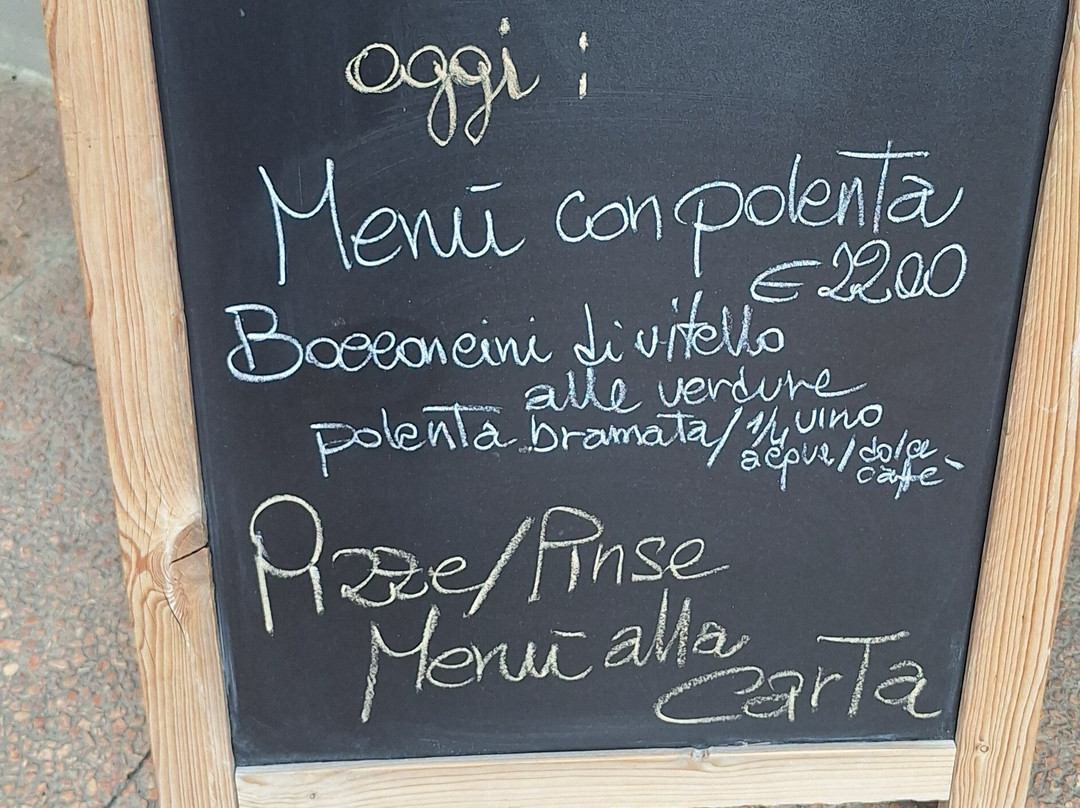 oggi :
Menū con polenta
€ 2200
Bocconcini di vitello
alle verdure
polenta bramata / 1/4 vino
acqua / dolce
caffè
Pizze / Pinse
Menū alla
Carta